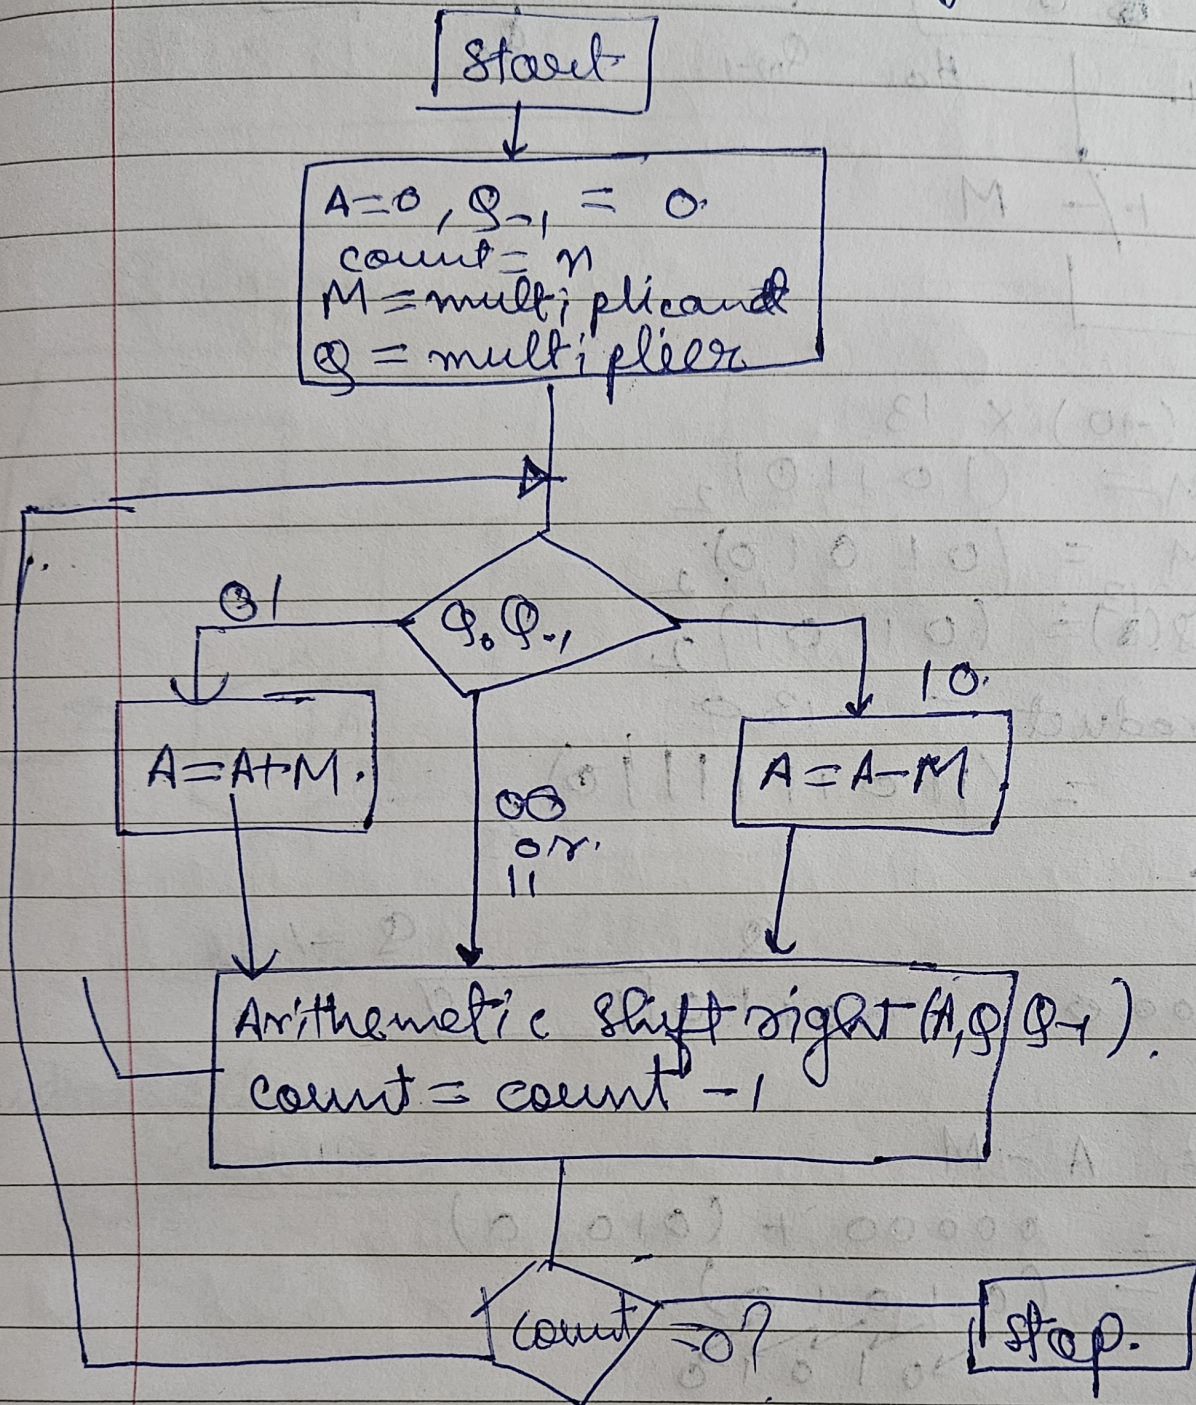 Start
A=0, Q-1 = 0.
count = n
M = multiplicand
Q = multiplier
Q0 Q-1
01
10.
A=A+M.
A=A-M
00
or.
11
Arithemetic Shift right (A,Q,Q-1).
count = count - 1
count =0?
Stop.